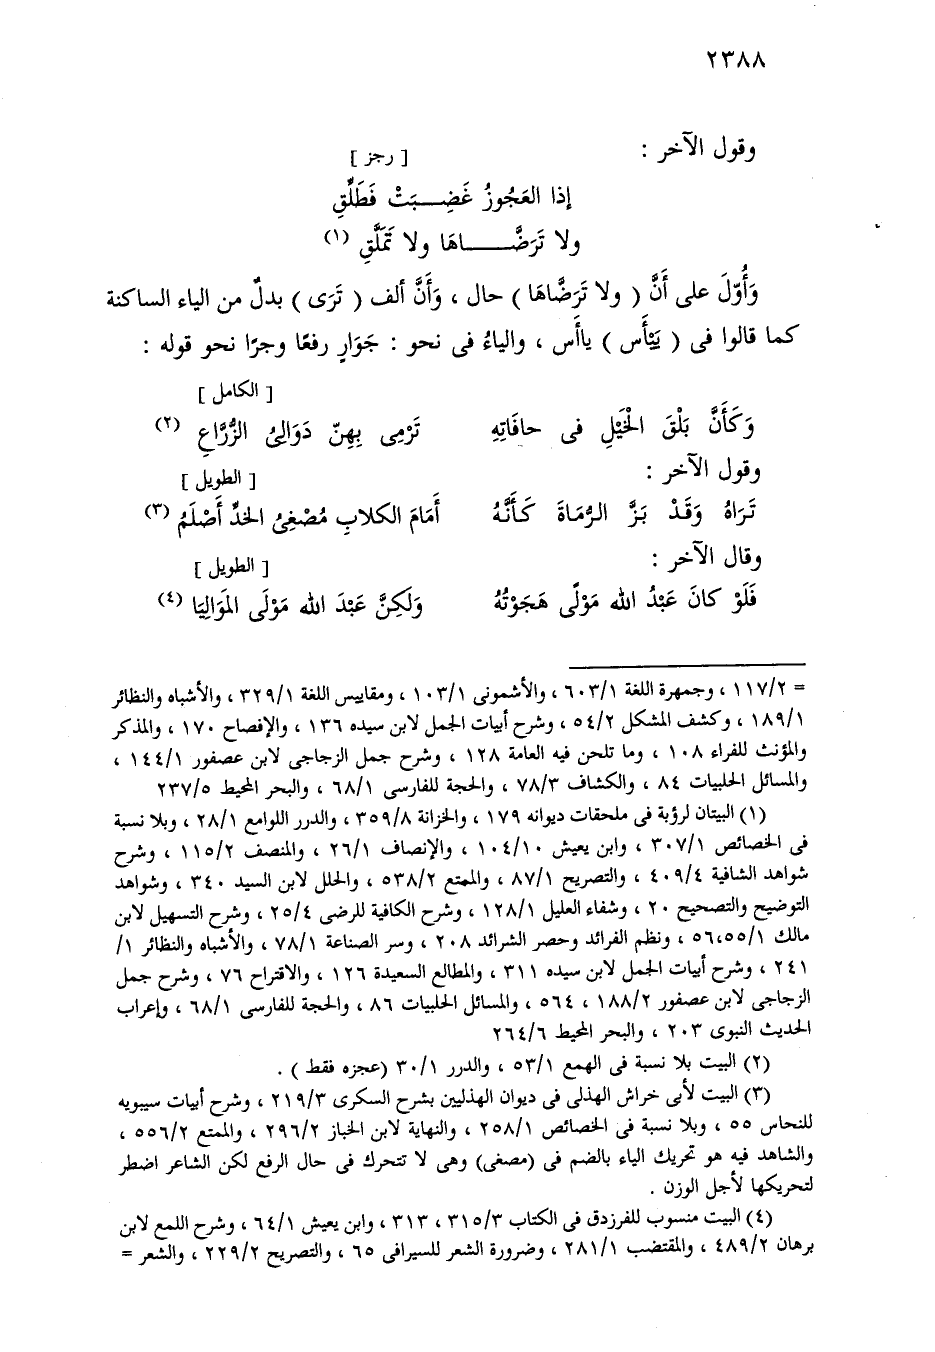 ٢٣٨٨
وقول الآخر :
[ رجز ]
إذا العَجُوزُ غَضِـــبَتْ فَطَلِّقِ
ولا تَرَضَّـــــاهَا ولا تَمَلَّقِ (١)
وَأُوّلَ على أَنَّ ( ولا تَرَضَّاهَا ) حال ، وَأَنَّ ألف ( تَرَى ) بدلٌ من الياء الساكنة
كما قالوا فى ( يَيْأَس ) ياأَس ، والياءُ فى نحو : جَوَارٍ رفعًا وجرًا نحو قوله :
[ الكامل ]
وَكَأَنَّ بَلْقَ الخَيْلِ فى حافَاتِهِ تَرْمِى بِهِنّ دَوَالِىُ الزُّرَّاعِ (٢)
وقول الآخر :
[ الطويل ]
تَرَاهُ وَقَدْ بَزَّ الرُّمَاةَ كَأَنَّهُ أَمَامَ الكلابِ مُصْغِىُ الخَدِّ أَصْلَمُ (٣)
وقال الآخر :
[ الطويل ]
فَلَوْ كانَ عَبْدُ الله مَوْلًى هَجَوْتُهُ وَلَكِنَّ عَبْدَ الله مَوْلَى المَوَالِيَا (٤)
= ١١٧/٢ ، وجمهرة اللغة ٦٠٣/١ ، والأشمونى ١٠٣/١ ، ومقاييس اللغة ٣٢٩/١ ، والأشباه والنظائر
١٨٩/١ ، وكشف المشكل ٥٤/٢ ، وشرح أبيات الجمل لابن سيده ١٣٦ ، والإفصاح ١٧٠ ، والمذكر
والمؤنث للفراء ١٠٨ ، وما تلحن فيه العامة ١٢٨ ، وشرح جمل الزجاجى لابن عصفور ١٤٤/١ ،
والمسائل الحلبيات ٨٤ ، والكشاف ٧٨/٣ ، والحجة للفارسى ٦٨/١ ، والبحر المحيط ٢٣٧/٥
(١) البيتان لرؤبة فى ملحقات ديوانه ١٧٩ ، والخزانة ٣٥٩/٨ ، والدرر اللوامع ٢٨/١ ، وبلا نسبة
فى الخصائص ٣٠٧/١ ، وابن يعيش ١٠٤/١٠ ، والإنصاف ٢٦/١ ، والمنصف ١١٥/٢ ، وشرح
شواهد الشافية ٤٠٩/٤ ، والتصريح ٨٧/١ ، والممتع ٥٣٨/٢ ، والحلل لابن السيد ٣٤٠ ، وشواهد
التوضيح والتصحيح ٢٠ ، وشفاء العليل ١٢٨/١ ، وشرح الكافية للرضى ٢٥/٤ ، وشرح التسهيل لابن
مالك ٥٦،٥٥/١ ، ونظم الفرائد وحصر الشرائد ٢٠٨ ، وسر الصناعة ٧٨/١ ، والأشباه والنظائر ١/
٢٤١ ، وشرح أبيات الجمل لابن سيده ٣١١ ، والمطالع السعيدة ١٢٦ ، والاقتراح ٧٦ ، وشرح جمل
الزجاجى لابن عصفور ١٨٨/٢ ، ٥٦٤ ، والمسائل الحلبيات ٨٦ ، والحجة للفارسى ٦٨/١ ، وإعراب
الحديث النبوى ٢٠٣ ، والبحر المحيط ٢٦٤/٦
(٢) البيت بلا نسبة فى الهمع ٥٣/١ ، والدرر ٣٠/١ (عجزه فقط ) .
(٣) البيت لأبى خراش الهذلى فى ديوان الهذليين بشرح السكرى ٢١٩/٣ ، وشرح أبيات سيبويه
للنحاس ٥٥ ، وبلا نسبة فى الخصائص ٢٥٨/١ ، والنهاية لابن الخباز ٢٩٦/٢ ، والممتع ٥٥٦/٢ ،
والشاهد فيه هو تحريك الياء بالضم فى (مصغى) وهى لا تتحرك فى حال الرفع لكن الشاعر اضطر
لتحريكها لأجل الوزن .
(٤) البيت منسوب للفرزدق فى الكتاب ٣١٥/٣ ، ٣١٣ ، وابن يعيش ٦٤/١ ، وشرح اللمع لابن
برهان ٤٨٩/٢ ، والمقتضب ٢٨١/١ ، وضرورة الشعر للسيرافى ٦٥ ، والتصريح ٢٢٩/٢ ، والشعر =